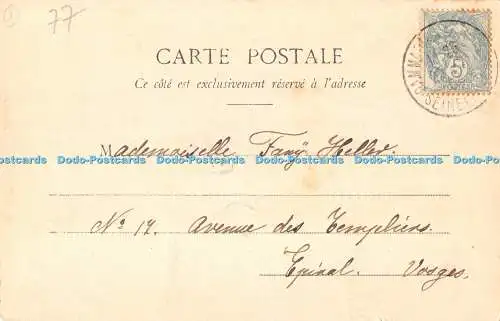 77
CARTE POSTALE
Ce côté est exclusivement réservé à l'adresse
Mademoiselle Fany Heller
Dodo-Postcards Dodo-Postcards Dodo-Postcards Dodo-Postcards Dodo-Postcards Dodo-Postcards
Nº 14. Avenue des Templiers.
Epinal. Vosges.
5